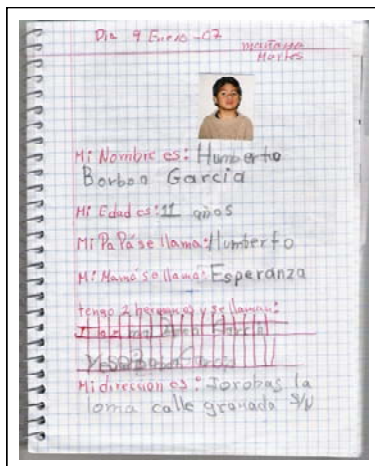 Dia 9 Enero -07
Martes
Mi Nombre es: Humberto
Borbon Garcia
Mi Edad es: 11 años
Mi PaPá se llama: Humberto
Mi Mamá se llama: Esperanza
tengo 2 hermanos y se llaman:
Garcia
Mi dirección es: Jorobas la
loma calle granado S/N